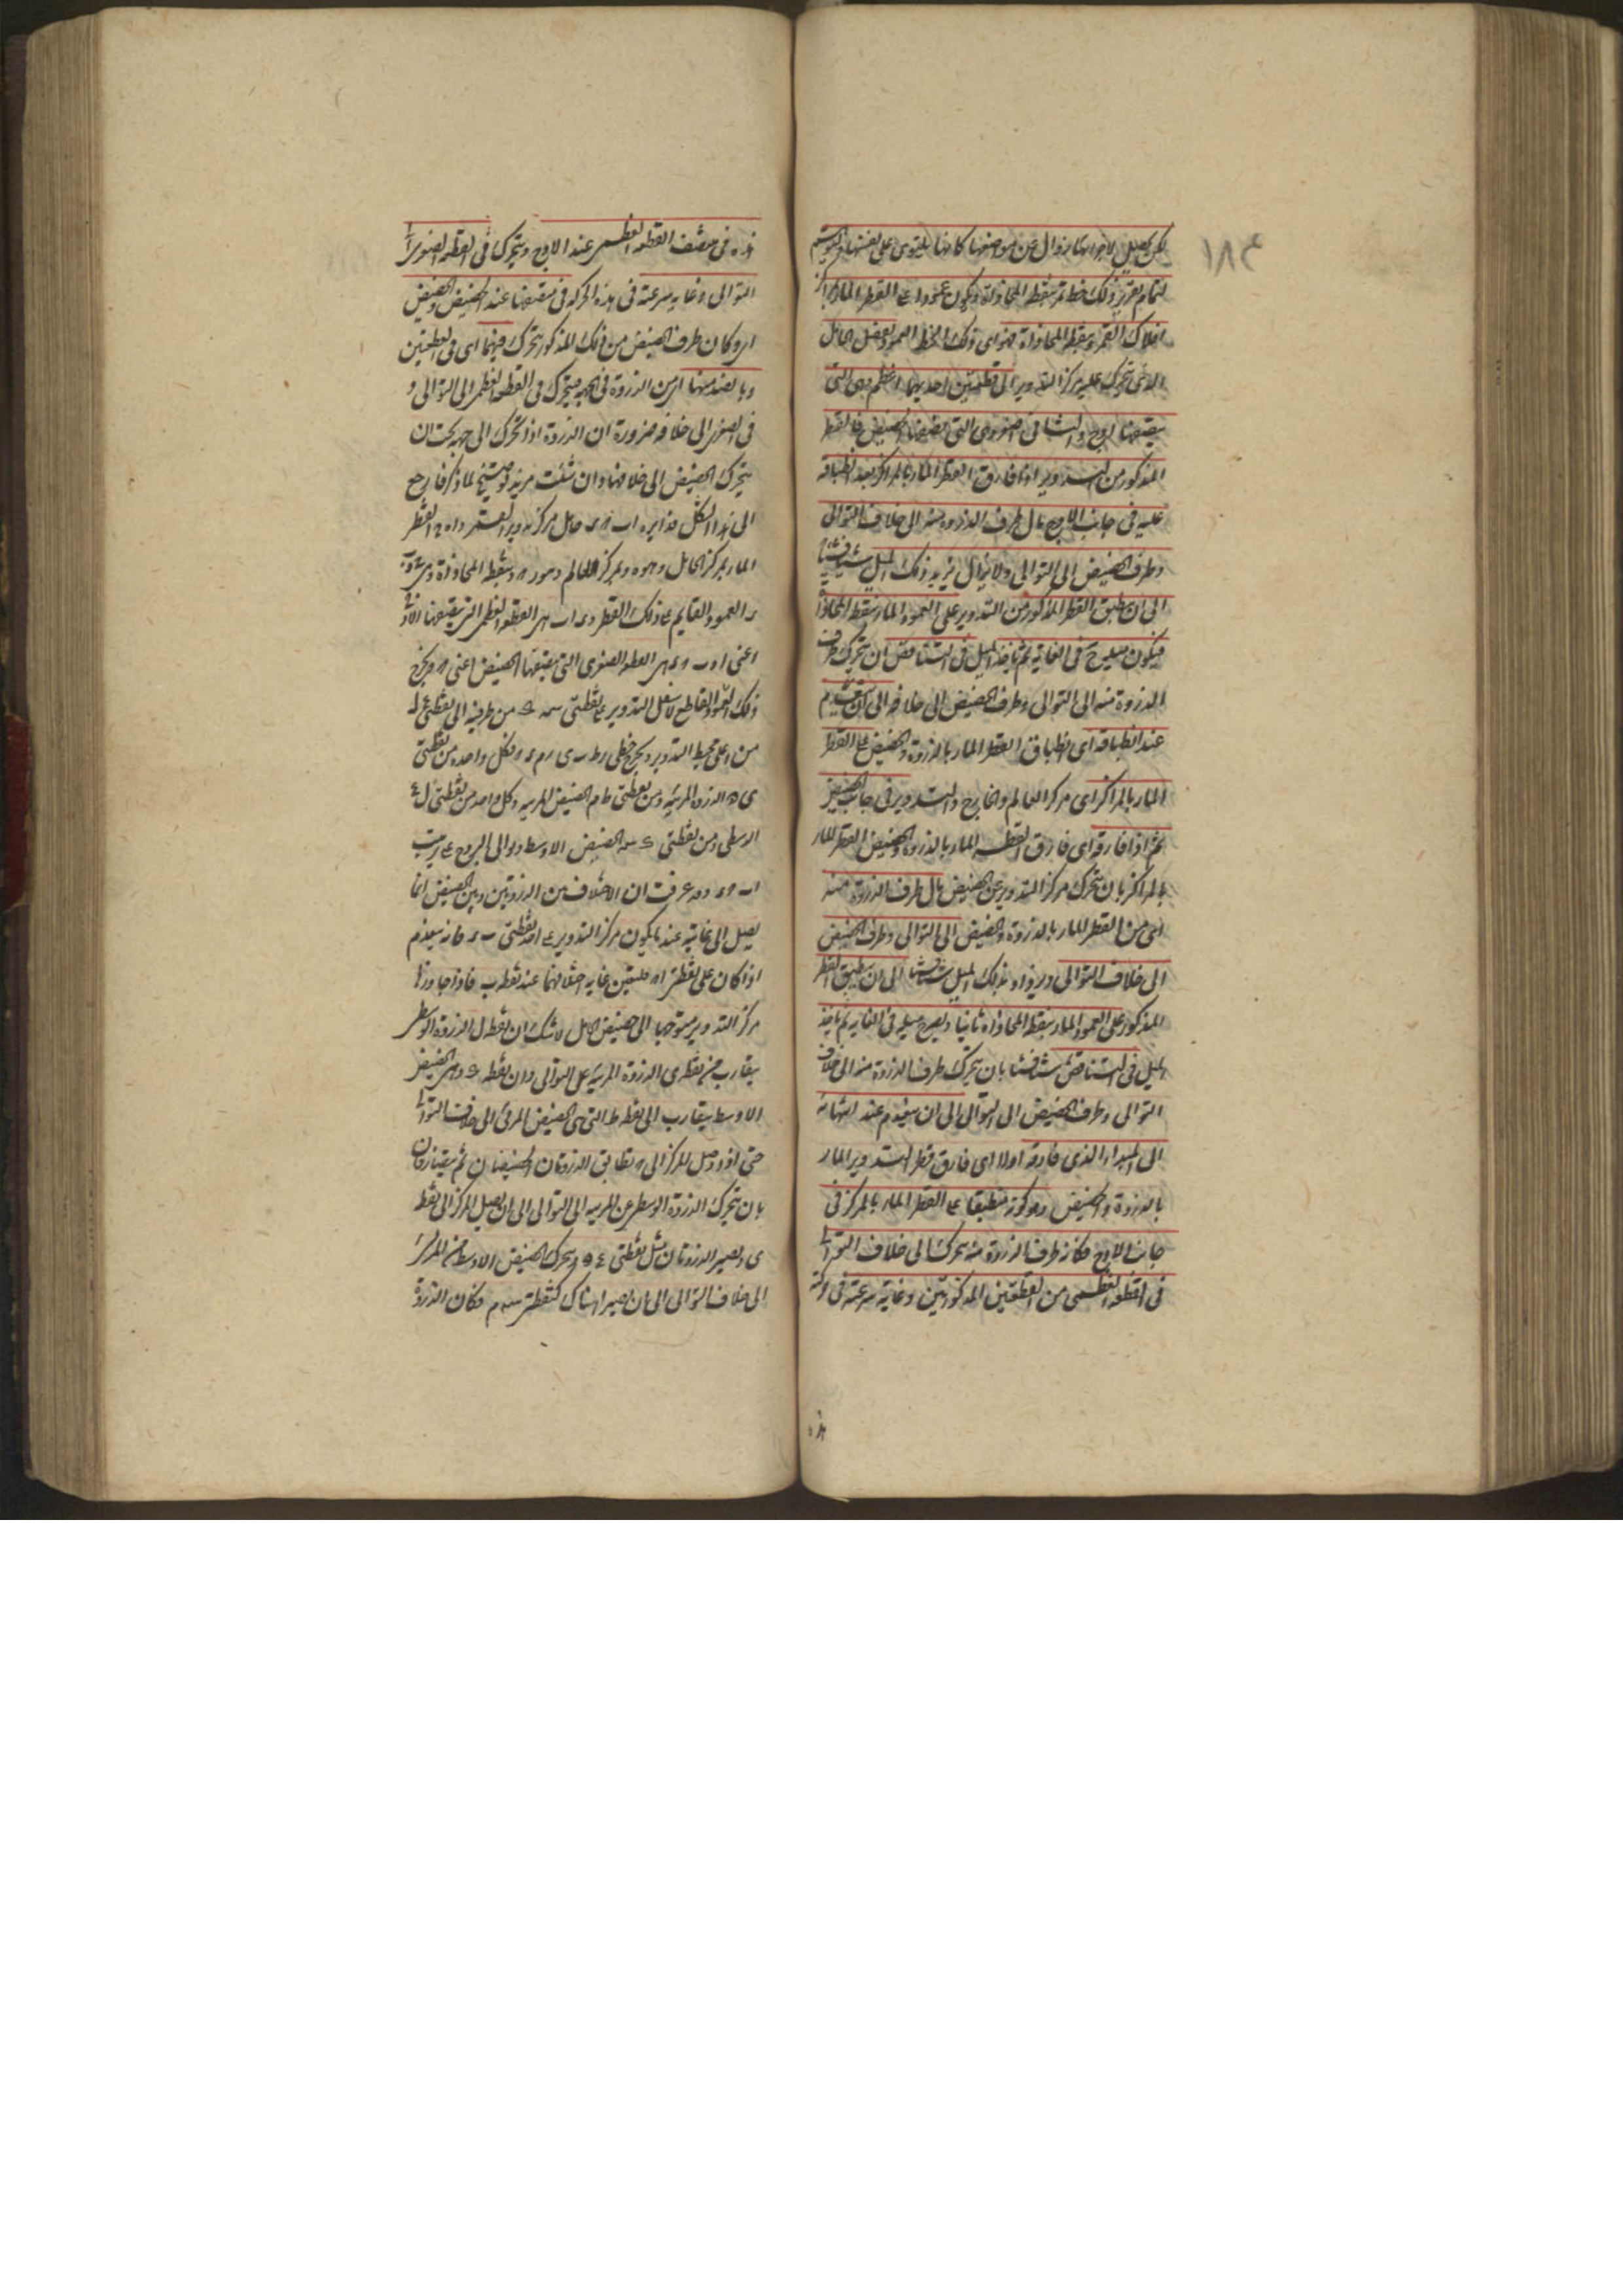 لكن يحصل لاجزائها زوال عن مواضعها كانها يلتوى على نفسها وليتوهم
لتمام تقرير ذلك خط يمر بنقطة المحاذاة ويكون عمودا على القطر المار بمراكز
افلاك القمر وبنقطة المحاذاة فهو اى ذلك الخط العمود يفصل الحامل
الذى يتحرك عليه مركز التدوير الى قطعتين احديهما اعظم وهى التى
ينتصفها الاوج والثانى اصغر وهى التى ينتصفها الحضيض فالقطر
المذكور من التدوير اذا فارق القطر المار بالمراكز بعد انطباقه
عليه فى جانب الاوج مال طرف الذروة منه الى خلاف التوالى
وطرف الحضيض الى التوالى ولا يزال يزيد ذلك الميل شيئا فشيئا
الى ان ينطبق القطر المذكور من التدوير على العمود المار بنقطة المحاذاة
فيكون ميله ح فى الغاية ثم ياخذ الميل فى التناقص بان يتحرك طرف
الذروة منه الى التوالى وطرف الحضيض الى خلافه الى ان ينعدم
عند انطباقه اى انطباق القطر المار بالذروة والحضيض على القطر
المار بالمراكز اى مركز العالم والخارج والتدوير فى جانب الحضيض
ثم اذا فارقه اى فارق القطر المار بالذروة والحضيض القطر المار
بالمراكز بان يتحرك مركز التدوير عن الحضيض مال طرف الذروة منه
اى من القطر المار بالذروة والحضيض الى التوالى وطرف الحضيض
الى خلاف التوالى ويزداد ذلك الميل شيئا فشيئا الى ان ينطبق القطر
المذكور على العمود المار بنقطة المحاذاة ثانيا ويصير ميله فى الغاية ثم ياخذ
الميل فى التناقص شيئا فشيئا بان يتحرك طرف الذروة منه الى خلاف
التوالى وطرف الحضيض الى التوالى الى ان ينعدم عند انتهائه
الى المبداء الذى فارقه اولا اى فارق قطر التدوير المار
بالذروة والحضيض وهو كونه منطبقا على القطر المار بالمركز فى
جانب الاوج فكان طرف الذروة منه متحركا الى خلاف التوالى
فى القطعة العظمى من القطعتين المذكورتين وغاية سرعته فى حركته
هذه فى منتصف القطعة العظمى عند الاوج ويتحرك فى القطعة الصغرى الى
التوالى وغاية سرعته فى هذه الحركة فى منتصفها عند الحضيض والحضيض
اى وكان طرف الحضيض من ذلك المذكور يتحرك فيهما اى فى القطعتين
وبالضد منها اى من الذروة فى الجهة فيتحرك فى القطعة العظمى الى التوالى و
فى الصغرى الى خلافه ضرورة ان الذروة اذا تحرك الى جهة يجب ان
يتحرك الحضيض الى خلافها وان شئت مزيد توضيح لما ذكر فارجع
الى هذا الشكل فدايرة ا ب ح د حامل مركز تدوير القمر و ا ه ح القطر
المار بمركز الحامل وهو ه وبمركز العالم وهو ر وبنقطة المحاذاة وهى
د العمود القايم على ذلك القطر و د ا ب هى القطعة العظمى التى ينتصفها الاوج
اعنى ا و ب ح د هى القطعة الصغرى التى ينتصفها الحضيض اعنى ح ويخرج
ذلك العمود القاطع لاسفل التدوير على نقطتى من طرفيه الى نقطتى ع ل
من اعلى محيط التدوير ويخرج خطى وكل واحدة من نقطتى
ى ه الذروة المرئية ومن نقطتى ط م الحضيض المرئية وكل واحد من نقطتى ل ع
الوسطى ومن نقطتى الحضيض الاوسط وتوالى البروج على ترتيب
ا ب ح د وقد عرفت ان الاختلاف بين الذروتين وبين الحضيضين انما
يصل الى غايته عندما يكون مركز التدوير على احد نقطتى ب د فانه ينعدم
اذا كان على نقطتى ا ح فليتعين غاية اختلافهما عند نقطة ب فاذا جاوزها
مركز التدوير متوجها الى حضيض الحامل لا شك ان نقطة ل الذروة الوسطى
يتقارب من نقطة ى الذروة المرئية على التوالى وان نقطة وهى الحضيض
الاوسط يتقارب الى نقطة ط التى هى الحضيض المرئى الى خلاف التوالى
حتى اذا وصل المركز الى ح تطابق الذروتان والحضيضان ثم يتفارقان
بان يتحرك الذروة الوسطى عن المرئية الى التوالى الى ان يصل المركز الى نقطة
ى ويصير الذروتان مثل نقطتى ع ه ويتحرك الحضيض الاوسط عن المرئى
الى خلاف التوالى الى ان يصير هناك كنقطتى م فكان الذروة